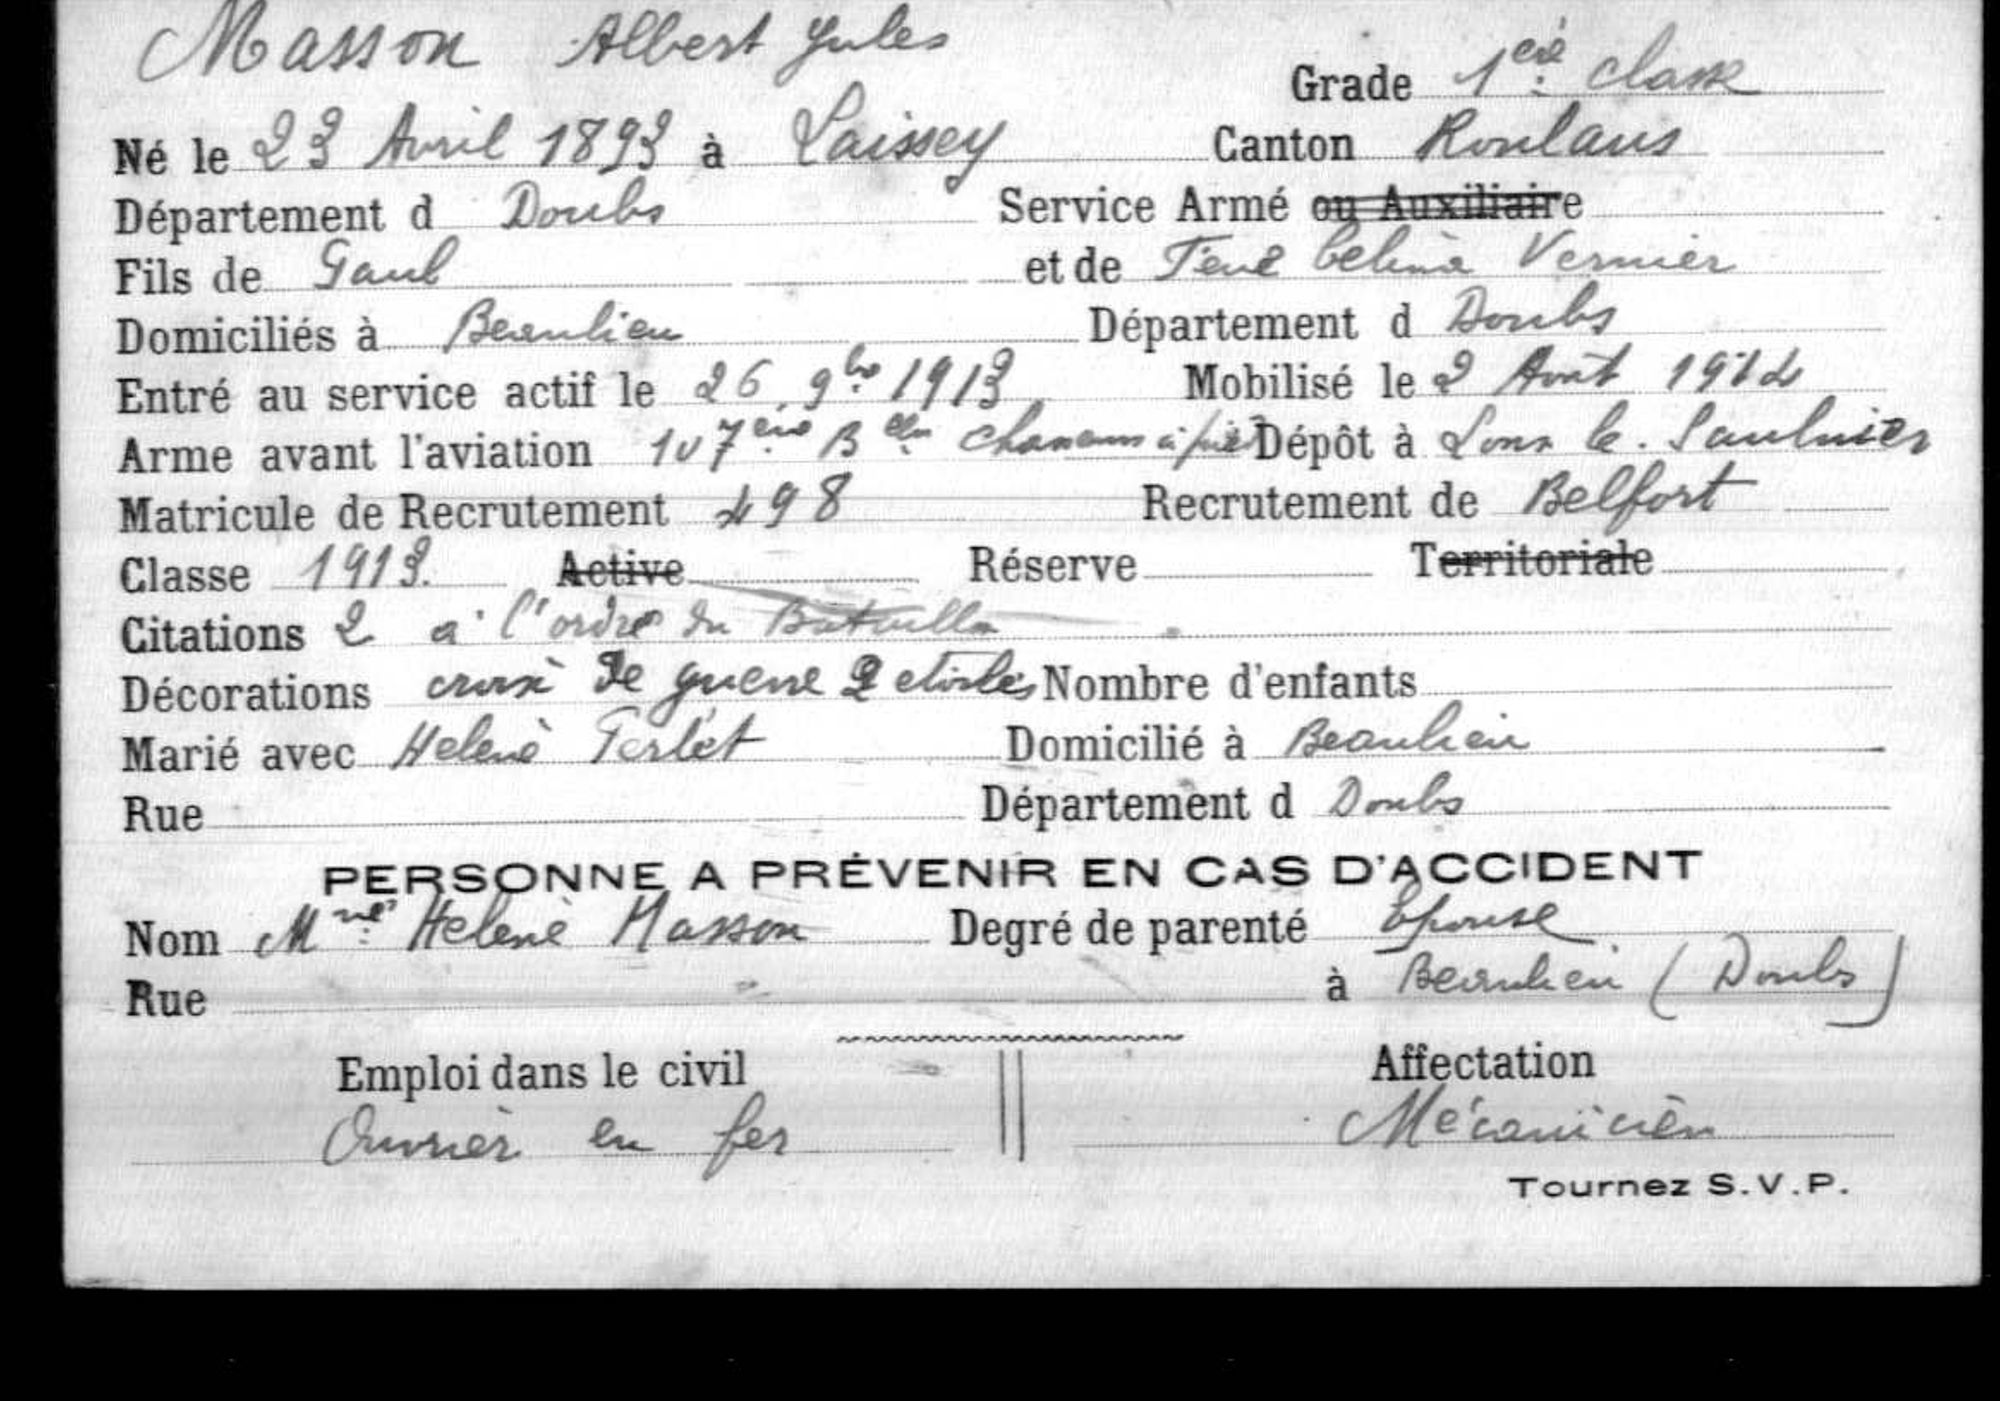 Masson Albert Jules
Grade 1ère classe
Né le 23 Avril 1893 à Laissey Canton Roulans
Département d Doubs Service Armé ou Auxiliaire
Fils de Paul et de Célina Vernier
Domiciliés à Beaulieu Département d Doubs
Entré au service actif le 26 9bre 1913 Mobilisé le 2 Août 1914
Arme avant l'aviation 107ème Bon chasseurs à pied Dépôt à Lons le Saulnier
Matricule de Recrutement 498 Recrutement de Belfort
Classe 1913. Active Réserve Territoriale
Citations 2 à l'ordre du Bataillon
Décorations croix de guerre 2 etoiles Nombre d'enfants
Marié avec Helenè Domicilié à Beaulieu
Rue Département d Doubs
PERSONNE A PRÉVENIR EN CAS D'ACCIDENT
Nom Mme Helenè Masson Degré de parenté Epouse
Rue à Beaulieu (Doubs)
Emploi dans le civil Affectation
Ouvrier en fer Mécanicien
Tournez S.V.P.